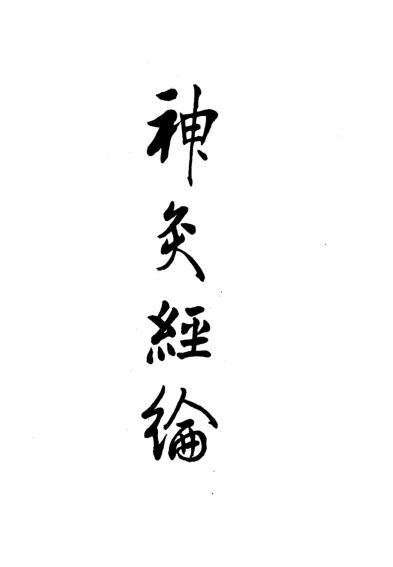 神灸經綸